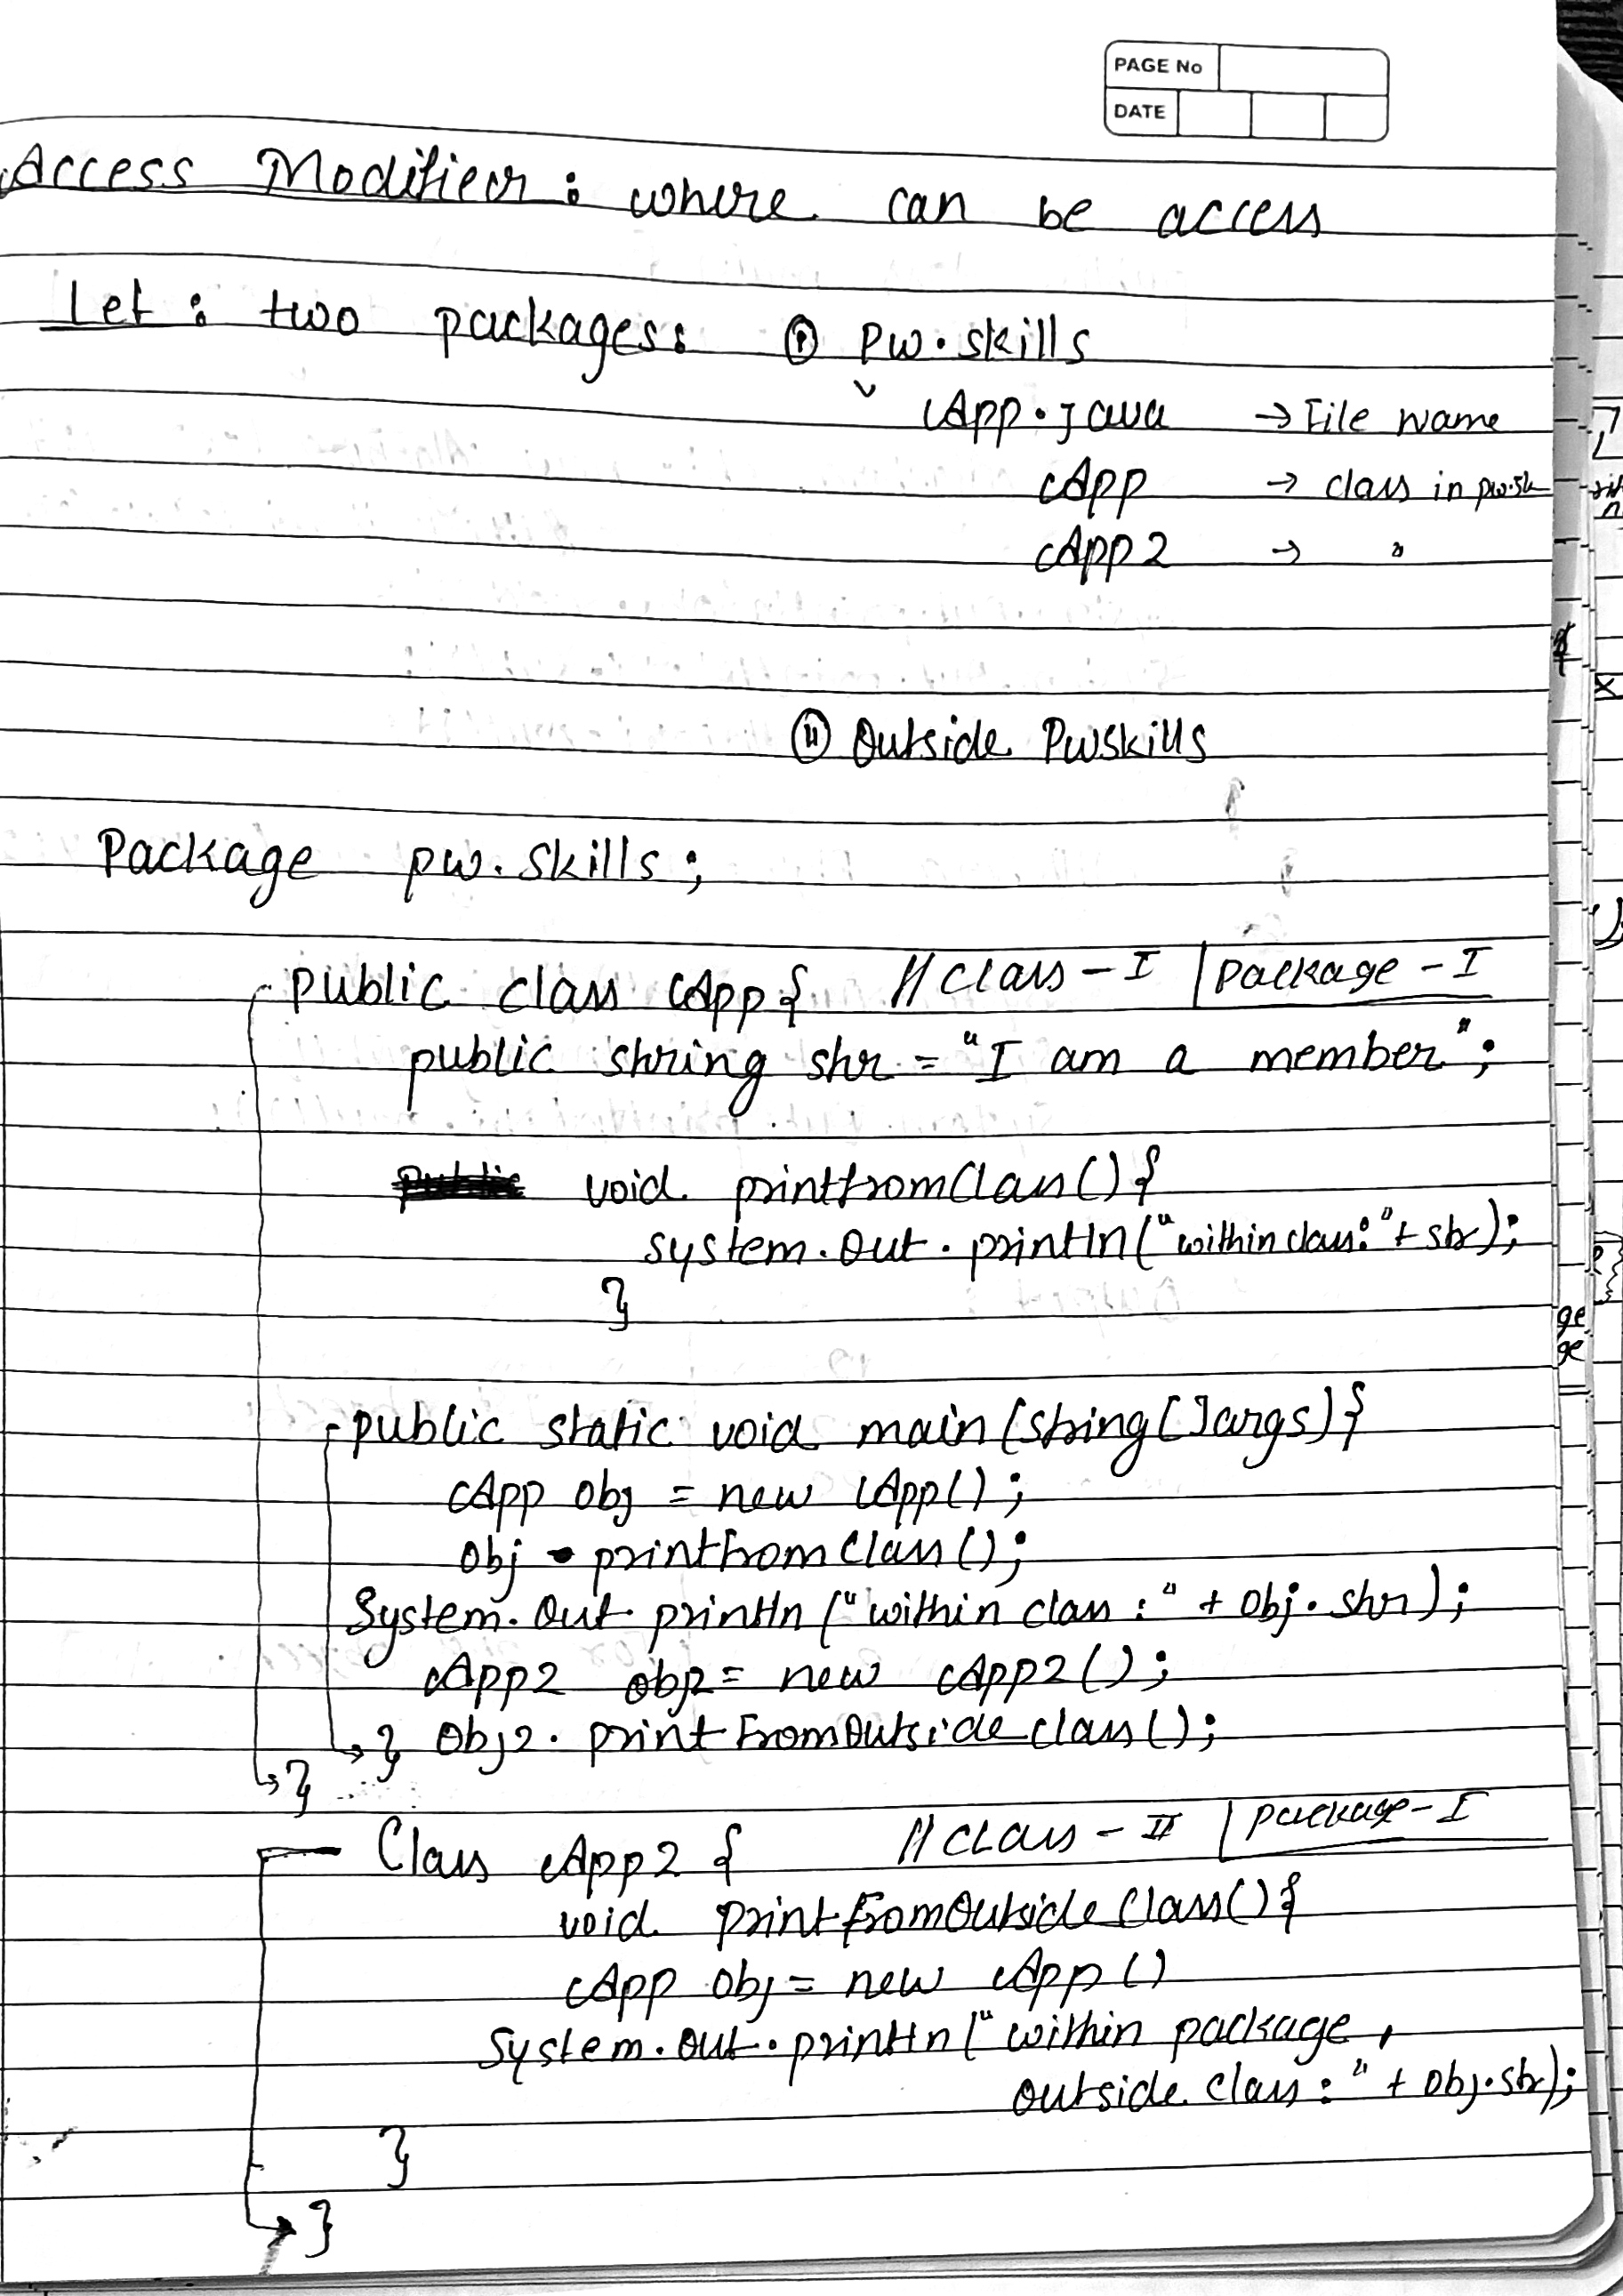 PAGE No
DATE
Access Modifier : where can be access
Let : two packages : (i) Pw.skills
App.java → File Name
App → class in pw.sk
App2 → "
(ii) Outside Pwskills
Package pw.skills;
public class App{ //Class-I | Package-I
public string str = "I am a member";
void printfromClass(){
system.out.println("within class:"+str);
}
public static void main(string[]args){
App obj = new App();
obj.printfromClass();
System.out.println("within class:" + obj.str);
App2 obj2 = new App2();
} Obj2.printFromOutsideclass();
}
Class App2 { //CLass-II | package-I
void printfromOutsideClass(){
App obj = new App()
System.out.println("within package,
outside class:" + obj.str);
}
}
ge
ge